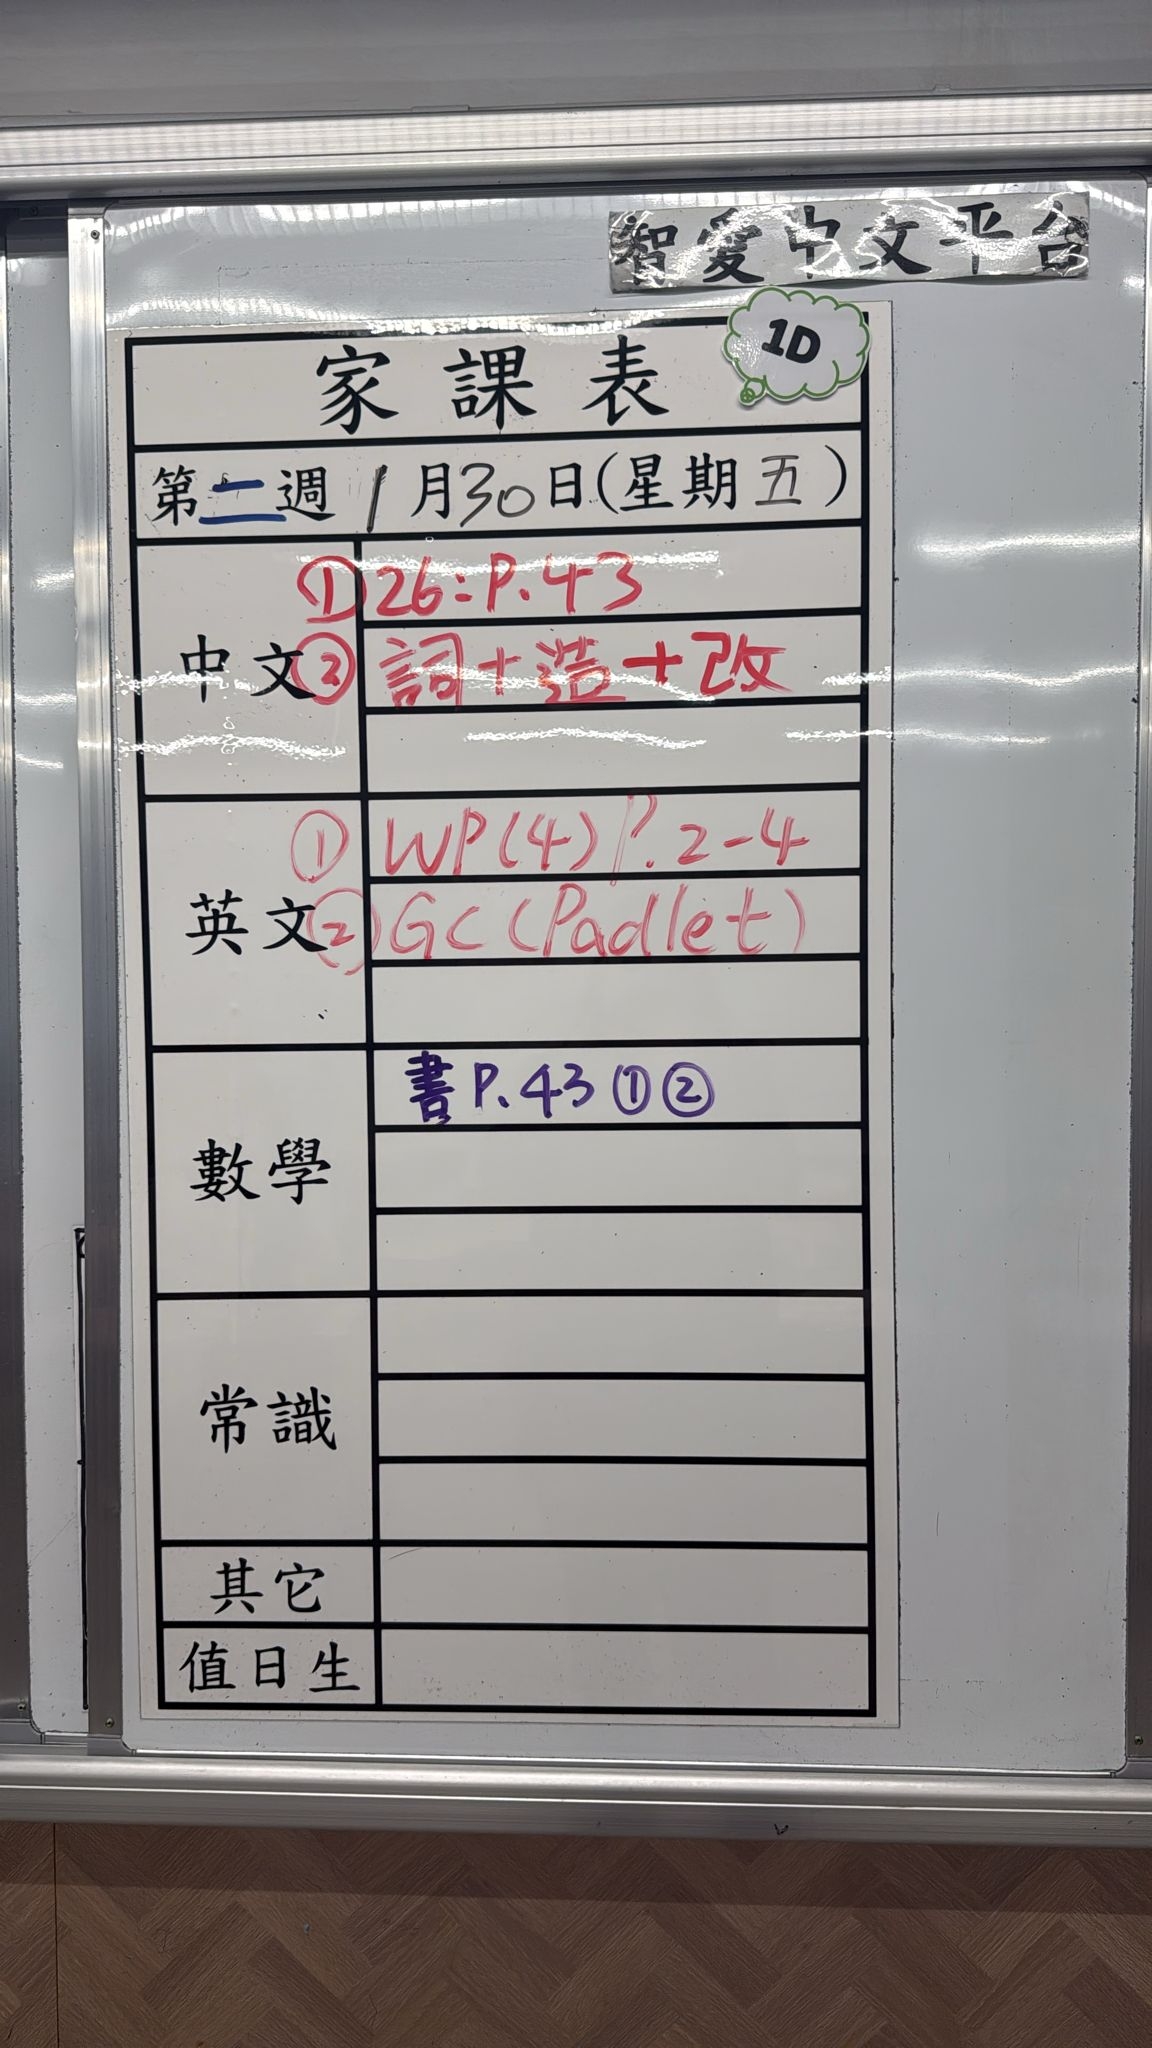 智愛中文平台
1D
家課表
第二週 1月30日(星期五)
中文
① 26:P.43
② 詞+造+改
英文
① WP(4) P.2-4
② GC (Padlet)
數學
書P.43①②
常識
其它
值日生